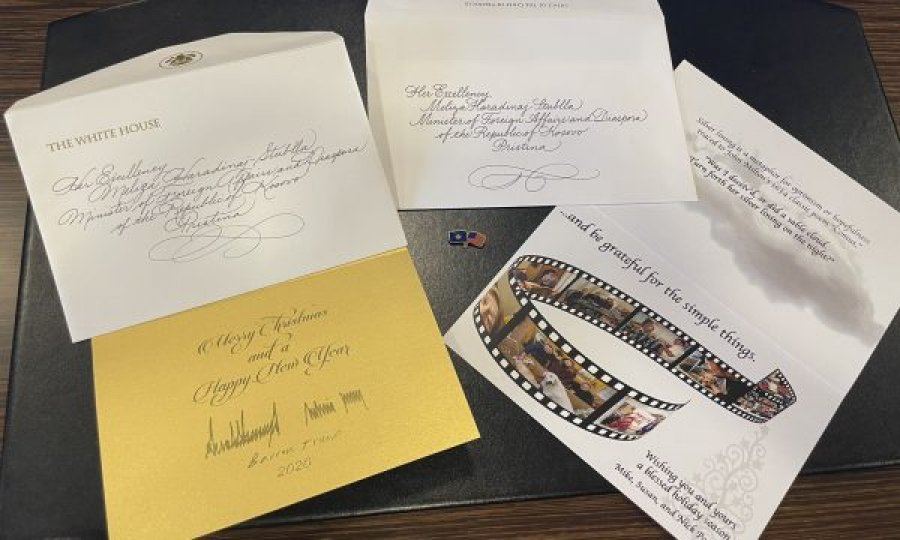 THE WHITE HOUSE
Her Excellency
Meliza Haradinaj Stublla
Minister of Foreign Affairs and Diaspora
of the Republic of Kosovo
Pristina
Merry Christmas
and a
Happy New Year
Barron Trump
2020
Her Excellency
Meliza Haradinaj Stublla
Minister of Foreign Affairs and Diaspora
of the Republic of Kosovo
Pristina
Silver lining is a metaphor for optimism or hopefulness
traced to John Milton's 1634 classic poem "Comus."
"Was I deceiv'd, or did a sable cloud
Turn forth her silver lining on the night?"
...and be grateful for the simple things.
Wishing you and yours
a blessed holiday season
Mike, Susan, and Nick